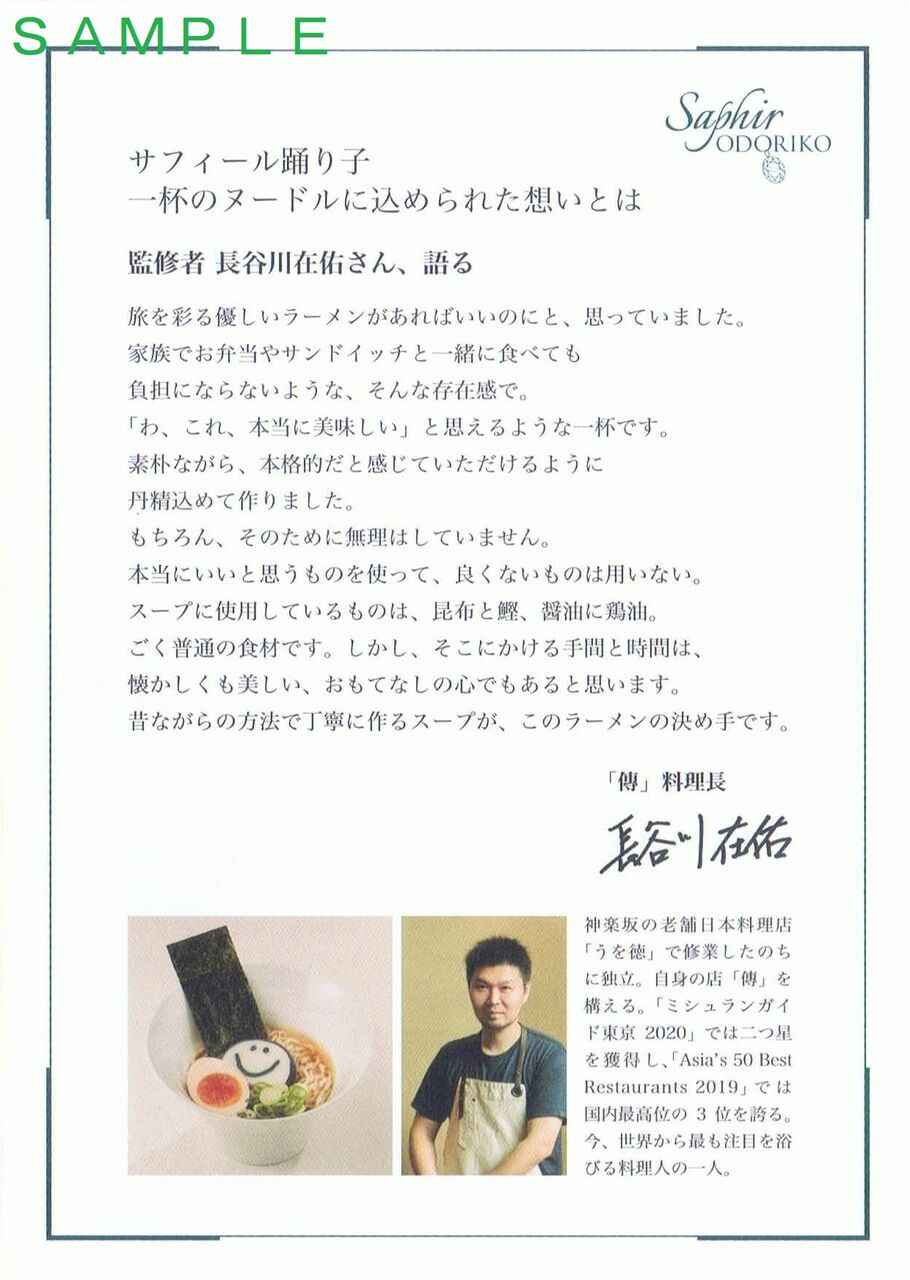 SAMPLE
Saphir
ODORIKO
サフィール踊り子
一杯のヌードルに込められた想いとは
監修者 長谷川在佑さん、語る
旅を彩る優しいラーメンがあればいいのにと、思っていました。
家族でお弁当やサンドイッチと一緒に食べても
負担にならないような、そんな存在感で。
「わ、これ、本当に美味しい」と思えるような一杯です。
素朴ながら、本格的だと感じていただけるように
丹精込めて作りました。
もちろん、そのために無理はしていません。
本当にいいと思うものを使って、良くないものは用いない。
スープに使用しているものは、昆布と鰹、醤油に鶏油。
ごく普通の食材です。しかし、そこにかける手間と時間は、
懐かしくも美しい、おもてなしの心でもあると思います。
昔ながらの方法で丁寧に作るスープが、このラーメンの決め手です。
「傳」料理長
長谷川在佑
神楽坂の老舗日本料理店
「うを徳」で修業したのち
に独立。自身の店「傳」を
構える。「ミシュランガイ
ド東京 2020」では二つ星
を獲得し、「Asia's 50 Best
Restaurants 2019」では
国内最高位の 3 位を誇る。
今、世界から最も注目を浴
びる料理人の一人。